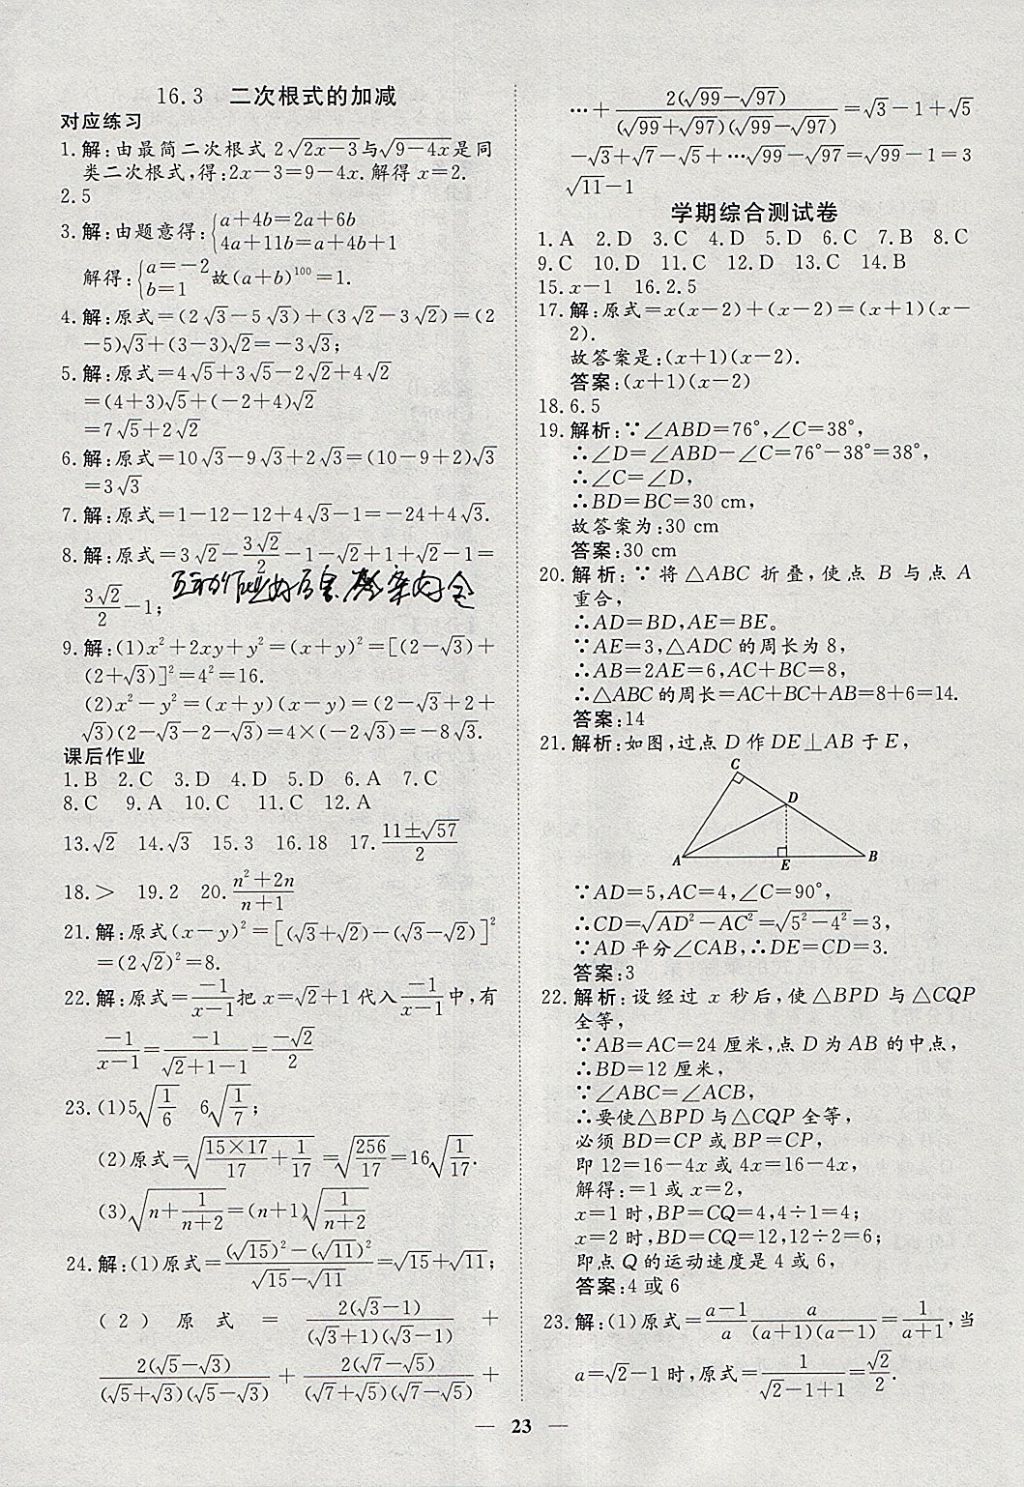 16.3 二次根式的加减
对应练习
1.解:由最简二次根式 2√(2x-3)与√(9-4x)是同
类二次根式,得:2x-3=9-4x.解得 x=2.
2.5
3.解:由题意得:{a+4b=2a+6b
4a+11b=a+4b+1
解得:{a=-2
b=1 故(a+b)¹⁰⁰=1.
4.解:原式=(2√3-5√3)+(3√2-3√2)=(2
-5)√3+(3-3)√2=-3√3;
5.解:原式=4√5+3√5-2√2+4√2
=(4+3)√5+(-2+4)√2
=7√5+2√2
6.解:原式=10√3-9√3+2√3=(10-9+2)√3
=3√3
7.解:原式=1-12-12+4√3-1=-24+4√3.
8.解:原式=3√2-3√2/2-1-√2+1+√2-1=
3√2/2-1;
9.解:(1)x²+2xy+y²=(x+y)²=[(2-√3)+
(2+√3)]²=4²=16.
(2)x²-y²=(x+y)(x-y)=(2-√3+2+
√3)(2-√3-2-√3)=4×(-2√3)=-8√3.
课后作业
1.B 2.C 3.D 4.D 5.D 6.A 7.C
8.C 9.A 10.C 11.C 12.A
13.√2 14.√3 15.3 16.18 17.(11±√57)/2
18.> 19.2 20.(n²+2n)/(n+1)
21.解:原式(x-y)²=[(√3+√2)-(√3-√2)]²
=(2√2)²=8.
22.解:原式=-1/(x-1)把 x=√2+1代入-1/(x-1)中,有
-1/(x-1)=-1/(√2+1-1)=-√2/2
23.(1)5√(1/6) 6√(1/7);
(2)原式=√(15×17/17+1/17)=√(256/17)=16√(1/17).
(3)√(n+1/(n+2))=(n+1)√(1/(n+2))
24.解:(1)原式=((√15)²-(√11)²)/(√15-√11)=√15+√11;
(2)原式=2(√3-1)/((√3+1)(√3-1))+
2(√5-√3)/((√5+√3)(√5-√3))+2(√7-√5)/((√7+√5)(√7-√5))+
…+2(√99-√97)/((√99+√97)(√99-√97))=√3-1+√5
-√3+√7-√5+…√99-√97=√99-1=3
√11-1
学期综合测试卷
1.A 2.D 3.C 4.D 5.D 6.C 7.B 8.C
9.C 10.D 11.C 12.D 13.C 14.B
15.x-1 16.2.5
17.解:原式=x(x-2)+(x-2)=(x+1)(x-
2).
故答案是:(x+1)(x-2).
答案:(x+1)(x-2)
18.6.5
19.解析:∵∠ABD=76°,∠C=38°,
∴∠D=∠ABD-∠C=76°-38°=38°,
∴∠C=∠D,
∴BD=BC=30 cm,
故答案为:30 cm
答案:30 cm
20.解析:∵将△ABC 折叠,使点 B 与点 A
重合,
∴AD=BD,AE=BE。
∵AE=3,△ADC的周长为 8,
∴AB=2AE=6,AC+BC=8,
∴△ABC的周长=AC+BC+AB=8+6=14.
答案:14
21.解析:如图,过点 D 作 DE⊥AB 于 E,
C
D
A
E
B
∵AD=5,AC=4,∠C=90°,
∴CD=√(AD²-AC²)=√(5²-4²)=3,
∵AD 平分∠CAB,∴DE=CD=3.
答案:3
22.解析:设经过 x 秒后,使△BPD 与△CQP
全等,
∵AB=AC=24 厘米,点 D 为 AB 的中点,
∴BD=12 厘米,
∵∠ABC=∠ACB,
∴要使△BPD 与△CQP 全等,
必须 BD=CP 或 BP=CP,
即 12=16-4x 或 4x=16-4x,
解得:=1 或 x=2,
x=1 时,BP=CQ=4,4÷1=4;
x=2 时,BD=CQ=12,12÷2=6;
即点 Q 的运动速度是 4 或 6,
答案:4 或 6
23.解:(1)原式=(a-1)/a a/((a+1)(a-1))=1/(a+1),当
a=√2-1 时,原式=1/(√2-1+1)=√2/2.
— 23 —